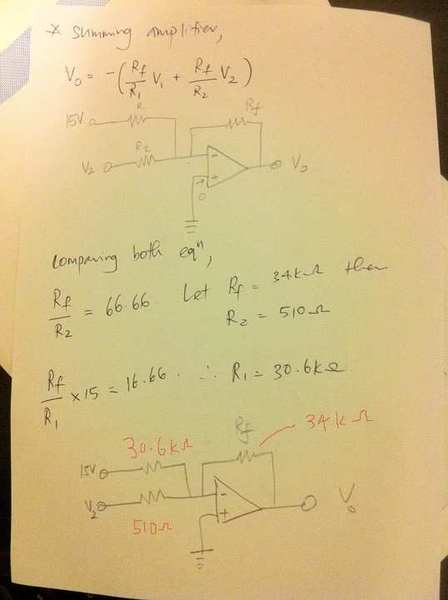 * Summing amplifier,
V₀ = -(Rf/R₁ V₁ + Rf/R₂ V₂)
15V R Rf
V₂ R₂ - + 0 V₀
Comparing both eqⁿ,
Rf/R₂ = 66.66. Let Rf = 34kΩ then
R₂ = 510Ω
Rf/R₁ × 15 = 16.66. ∴ R₁ = 30.6kΩ
30.6kΩ Rf 34kΩ
15V
V₂ - + V₀
510Ω